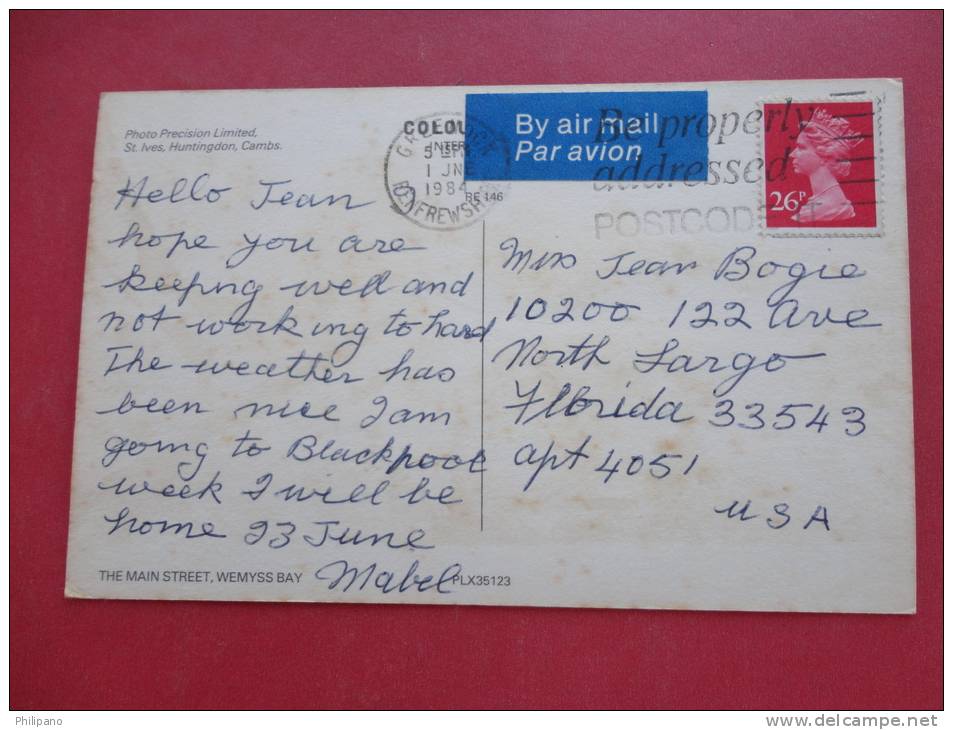 Photo Precision Limited,
St. Ives, Huntingdon, Cambs.
COLOU
INTER
GREENOCK
1 JNE
1984
RENFREWSH
RE 146
By air mail
Par avion
Be properly
addressed
POSTCODE IT
26P
Hello Jean
hope you are
keeping well and
not working to hard
The weather has
been nice I am
going to Blackpool
week I will be
home 23 June
Mabel
Miss Jean Bogie
10200 122 Ave
North Largo
Florida 33543
apt 4051
USA
THE MAIN STREET, WEMYSS BAY
PLX35123
Philipano
www.delcampe.net